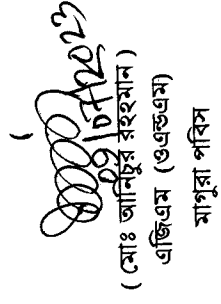 ০৭/০৭/২০২৩
( মোঃ আনিচুর রহমান )
এজিএম (ওএন্ডএম)
মাগুরা পবিস